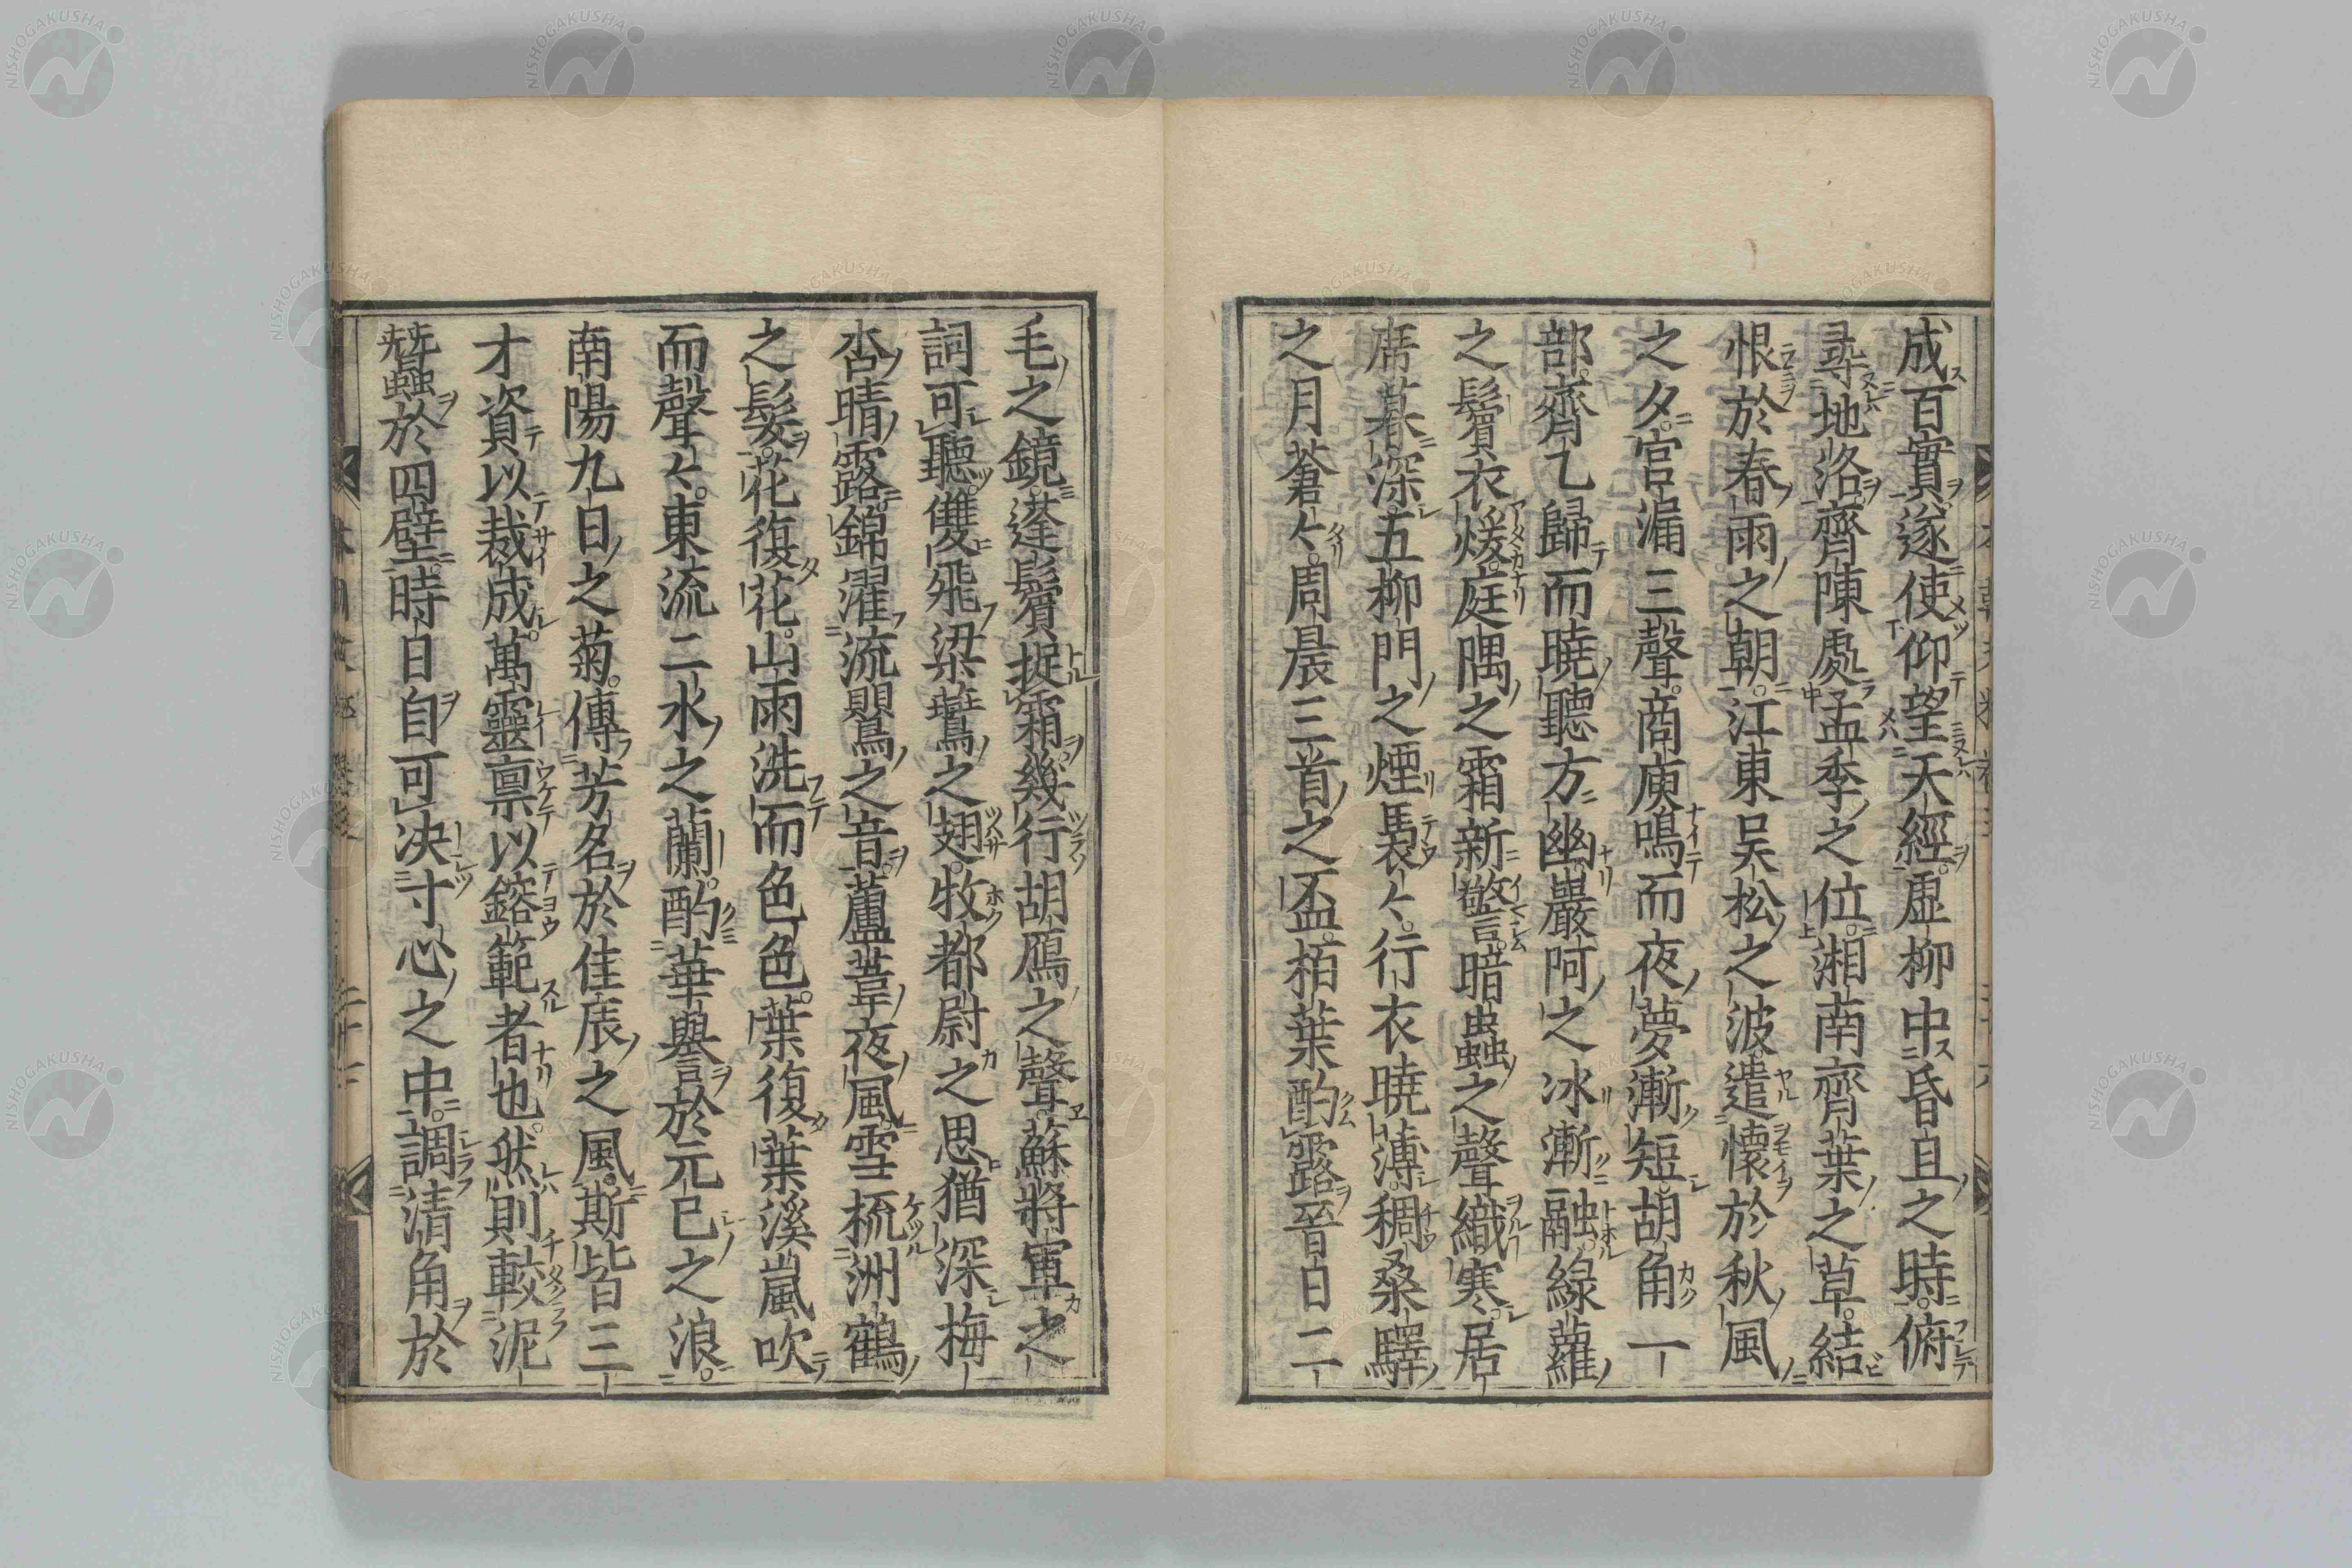 成百實遂使仰望天經虚柳中昏且之時俯
尋地洛齊陳處孟季之位湘南齊葉之草結
恨於春雨之朝江東呉松之波遣懷於秋風
之夕宮漏三聲商庚鳴而夜夢漸短胡角一
部齊乙歸而曉聽方幽巖阿之冰漸融綠蘿
之鬢衣煖庭隅之霜新警暗蟲之聲織寒居
席暮深五柳門之煙裊々行衣曉薄稠桑驛
之月蒼々周晨三首之盃栢葉酌露晉日二
毛之鏡蓬鬢捉霜幾行胡鴈之聲蘇將軍之
詞可聽雙飛梁鷰之翅牧都尉之思猶深梅
杏晴露錦濯流鸎之音蘆葦夜風雪梳洲鶴
之髮花復花山雨洗而色色葉復葉溪嵐吹
而聲々東流二水之蘭酌華譽於元巳之浪
南陽九日之菊傳芳名於佳辰之風斯皆三
才資以裁成萬靈禀以鎔範者也然則較泥
蠶於四壁時日自可決寸心之中調清角於
NISHOGAKUSHA